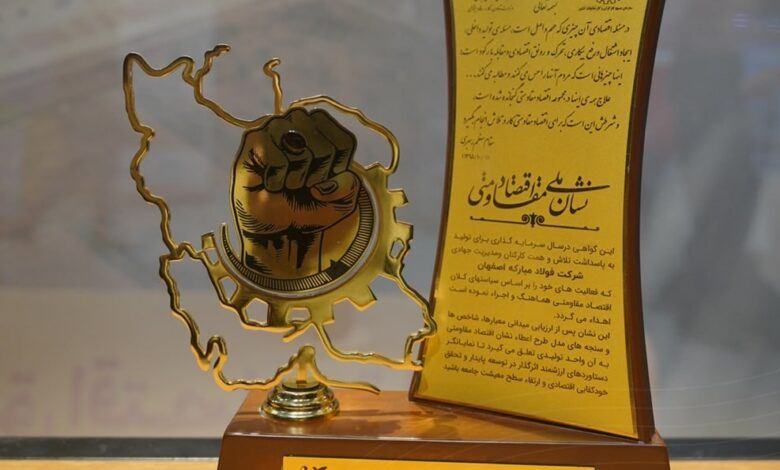 بسمه تعالی
در مسئله اقتصادی آن چیزی که مهم و اصل است، مسئله ی تولید داخلی،
ایجاد اشتغال و رفع بیکاری، تحرک و رونق اقتصادی و مقابله با رکود است؛
اینها چیزهایی است که مردم آنها را حس می کنند و مطالبه می کنند...
علاج همه ی اینها در مجموعه اقتصاد مقاومتی گنجانده شده است،
و شرطش این است که برای اقتصاد مقاومتی کار و تلاش انجام بگیرد
مقام معظم رهبری
نشان ملی اقتصاد مقاومتی
این گواهی در سال سرمایه گذاری برای تولید
به پاسداشت تلاش و همت کارکنان و مدیریت جهادی
شرکت فولاد مبارکه اصفهان
که فعالیت های خود را بر اساس سیاستهای کلان
اقتصاد مقاومتی هماهنگ و اجراء نموده است
اهداء می گردد.
این نشان پس از ارزیابی میدانی معیارها، شاخص ها
و سنجه های مدل طرح اعطاء نشان اقتصاد مقاومتی
به آن واحد تولیدی تعلق می گیرد تا نمایانگر
دستاوردهای ارزشمند اثرگذار در توسعه پایدار و تحقق
خودکفایی اقتصادی و ارتقاء سطح معیشت جامعه باشید